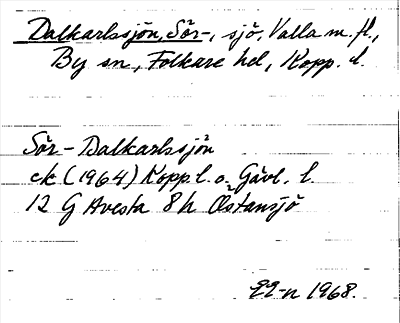 Dalkarlssjön, Sör-, sjö, Valla m. fl.,
By sn, Folkare hd, Kopp. l.
Sör-Dalkarlssjön
ek (1964) Kopp. l. o. Gävl. l.
12 G Avesta 8 h Östansjö
1968.